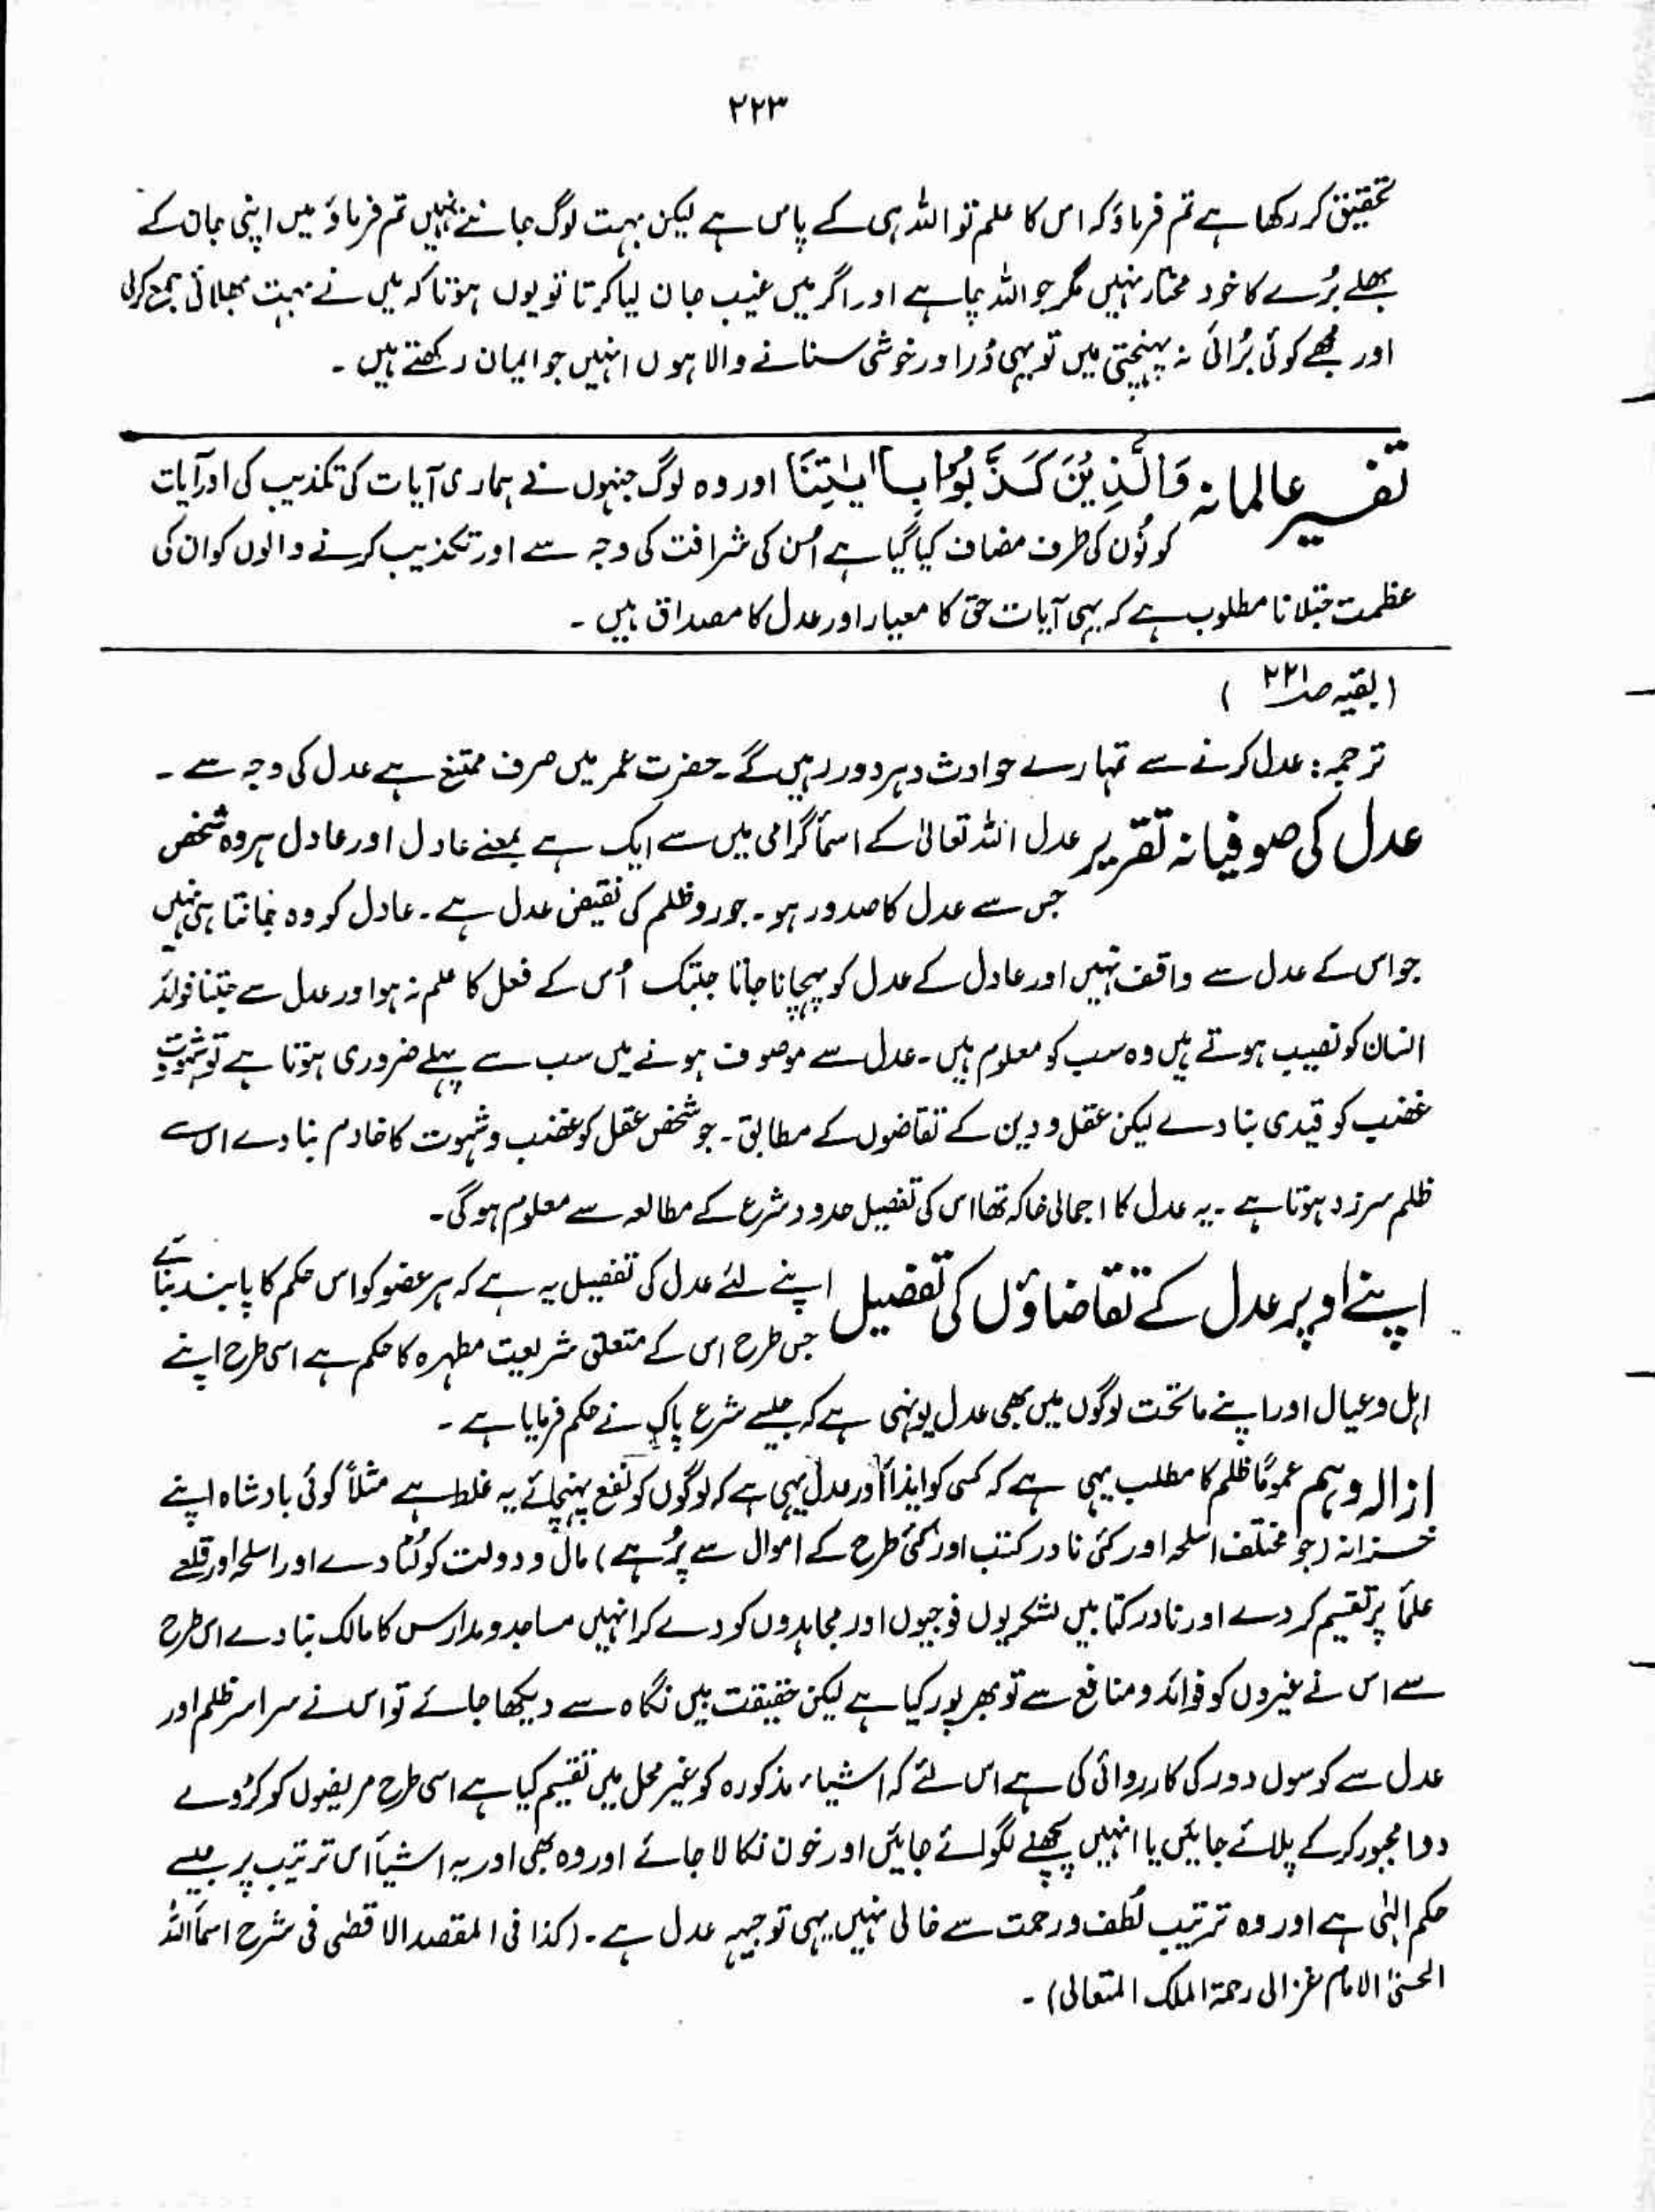 ۲۲۳
تحقیق کر رکھا ہے تم فرماؤ کہ اس کا علم تو اللہ ہی کے پاس ہے لیکن بہت لوگ جانتے نہیں تم فرماؤ میں اپنی جان کے
بھلے بُرے کا خود مختار نہیں مگر جو اللہ چاہے اور اگر میں غیب جان لیا کرتا تو یوں ہوتا کہ میں نے بہت بھلائی جمع کرلی
اور مجھے کوئی بُرائی نہ پہنچتی میں تو یہی ڈر اور خوشی سنانے والا ہوں انہیں جو ایمان رکھتے ہیں ۔
تفسیر عالمانہ وَالَّذِیْنَ کَذَّبُوْا بِاٰیٰتِنَا اور وہ لوگ جنہوں نے ہماری آیات کی تکذیب کی اور آیات
کو نُون کی طرف مضاف کیا گیا ہے اُس کی شرافت کی وجہ سے اور تکذیب کرنے والوں کو ان کی
عظمت جتلانا مطلوب ہے کہ یہی آیات حق کا معیار اور عدل کا مصداق ہیں ۔
(بقیہ صہ ۲۲۱ )
ترجمہ : عدل کرنے سے تمہارے حوادث دہر دور رہیں گے ۔ حضرت عمر میں صرف ممتنع ہے عدل کی وجہ سے ۔
عدل کی صوفیانہ تقریر عدل اللہ تعالیٰ کے اسمأ گرامی میں سے ایک ہے بمعنے عادل اور عادل ہر وہ شخص
جس سے عدل کا صدور ہو ۔ جور و ظلم کی نقیض عدل ہے ۔ عادل کو وہ جانتا ہی نہیں
جو اس کے عدل سے واقف نہیں اور عادل کے عدل کو پہچانا جانا جبتک اُس کے فعل کا علم نہ ہو اور عدل سے جتنا فوائد
انسان کو نصیب ہوتے ہیں وہ سب کو معلوم ہیں ۔ عدل سے موصوف ہونے میں سب سے پہلے ضروری ہوتا ہے تو شہوت و
غضب کو قیدی بنا دے لیکن عقل و دین کے تقاضوں کے مطابق ۔ جو شخص عقل کو غضب و شہوت کا خادم بنا دے اس سے
ظلم سرزد ہوتا ہے ۔ یہ عدل کا اجمالی خاکہ تھا اس کی تفصیل حدود شرع کے مطالعہ سے معلوم ہوگی ۔
اپنے اوپر عدل کے تقاضاؤں کی تفصیل اپنے لئے عدل کی تفصیل یہ ہے کہ ہر عضو کو اس حکم کا پابند بنائے
جس طرح اس کے متعلق شریعت مطہرہ کا حکم ہے اسی طرح اپنے
اہل و عیال اور اپنے ماتحت لوگوں میں بھی عدل یونہی ہے کہ جیسے شرع پاک نے حکم فرمایا ہے ۔
ازالہ وہم عمومًا ظلم کا مطلب یہی ہے کہ کسی کو ایذأ اور عدل یہی ہے کہ لوگوں کو نفع پہنچائے یہ غلط ہے مثلاً کوئی بادشاہ اپنے
خزانہ (جو مختلف اسلحہ اور کئی نادر کتب اور کئی طرح کے اموال سے پُر ہے) مال و دولت کو لُٹا دے اور اسلحہ اور قلعے
علمأ پر تقسیم کر دے اور نادر کتابیں لشکریوں فوجیوں اور مجاہدوں کو دے کر انہیں مساجد و مدارس کا مالک بنا دے اس طرح
سے اس نے غیروں کو فوائد و منافع سے تو بھرپور کیا ہے لیکن حقیقت بیں نگاہ سے دیکھا جائے تو اس نے سراسر ظلم اور
عدل سے کوسوں دور کی کارروائی کی ہے اس لئے کہ اشیاء مذکورہ کو غیر محل میں تقسیم کیا ہے اسی طرح مریضوں کو کڑوے
دوا مجبور کر کے پلائے جائیں یا انہیں پچھنے لگوائے جائیں اور خون نکالا جائے اور وہ بھی اور یہ اشیأ اس ترتیب پر جیسے
حکم الٰہی ہے اور وہ ترتیب لُطف و رحمت سے خالی نہیں یہی توجیہہ عدل ہے ۔ (کذا فی المقصد الاقصٰی فی شرح اسمأ اللہ
الحسنیٰ الامام غزالی رحمۃ الملک المتعالی) ۔